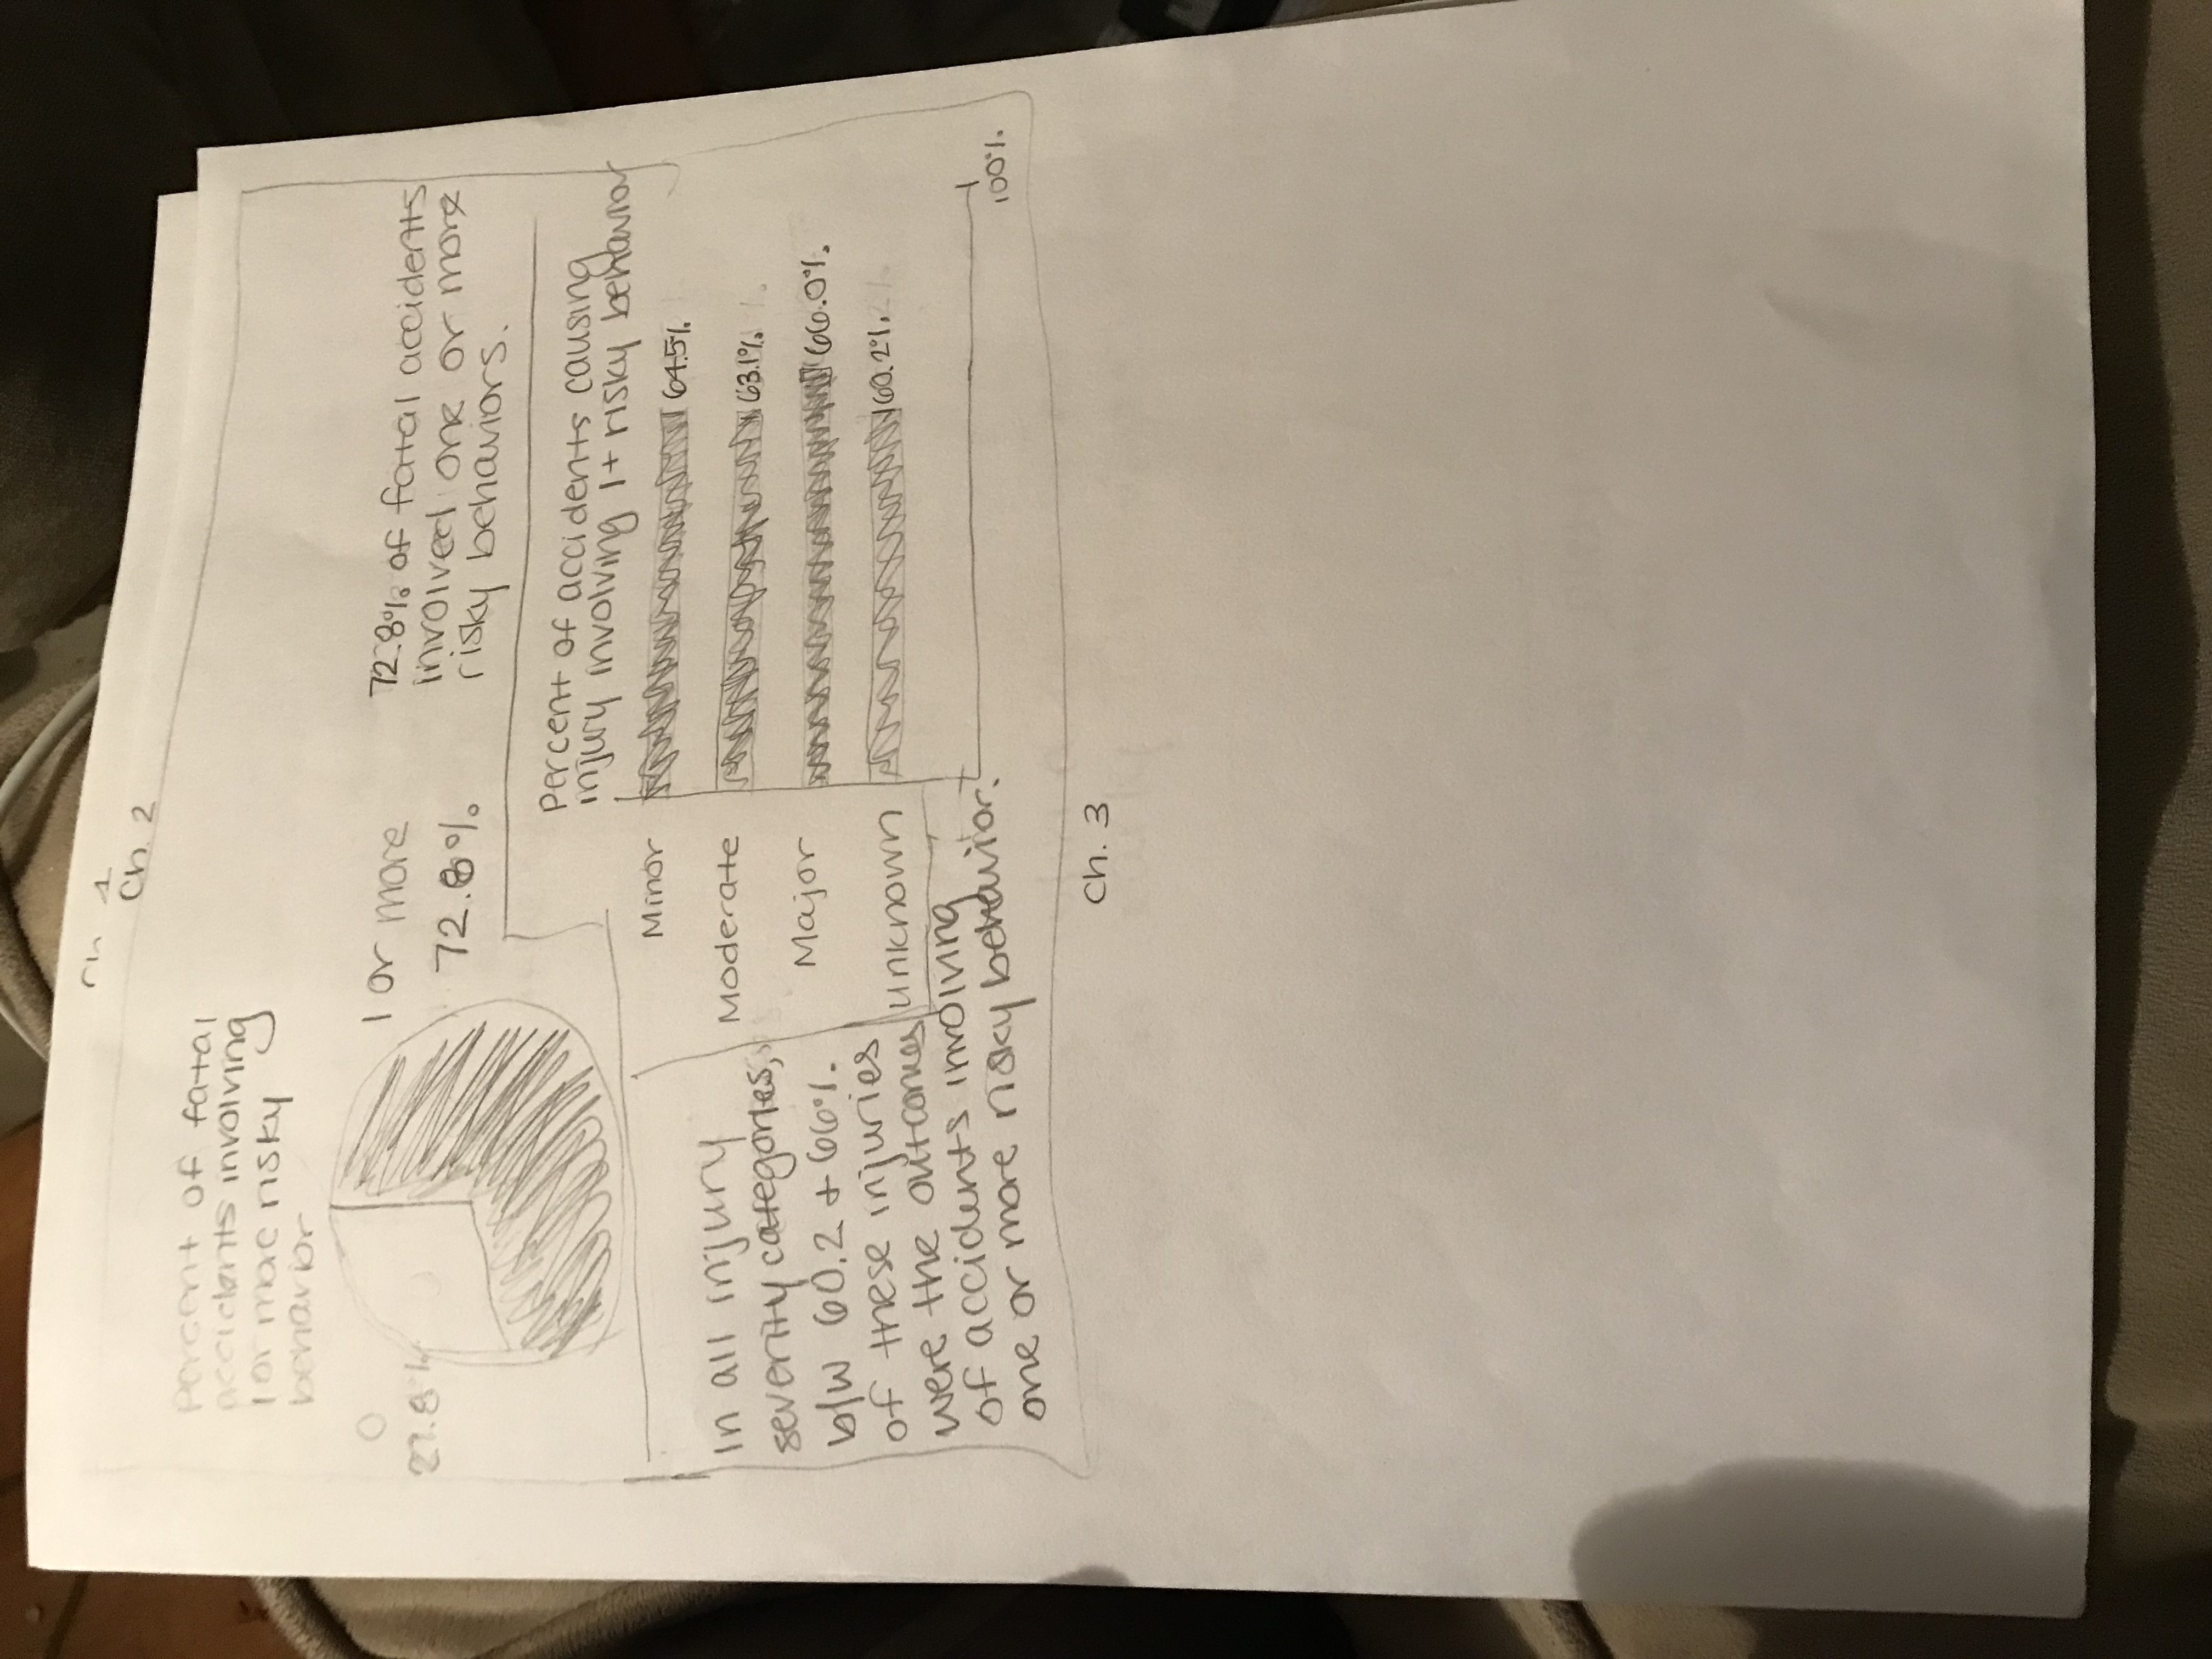 Ch. 1
Ch. 2
percent of fatal
accidents involving
1 or more risky
behavior
0
27.8%
1 or more
72.8%
72.8% of fatal accidents
involved one or more
risky behaviors.
Percent of accidents causing
injury involving 1+ risky behavior
Minor
64.5%
Moderate
63.1%
Major
66.0%
unknown
60.2%
100%
In all injury
severity categories,
b/w 60.2 + 66%
of these injuries
were the outcomes
of accidents involving
one or more risky behavior.
Ch. 3